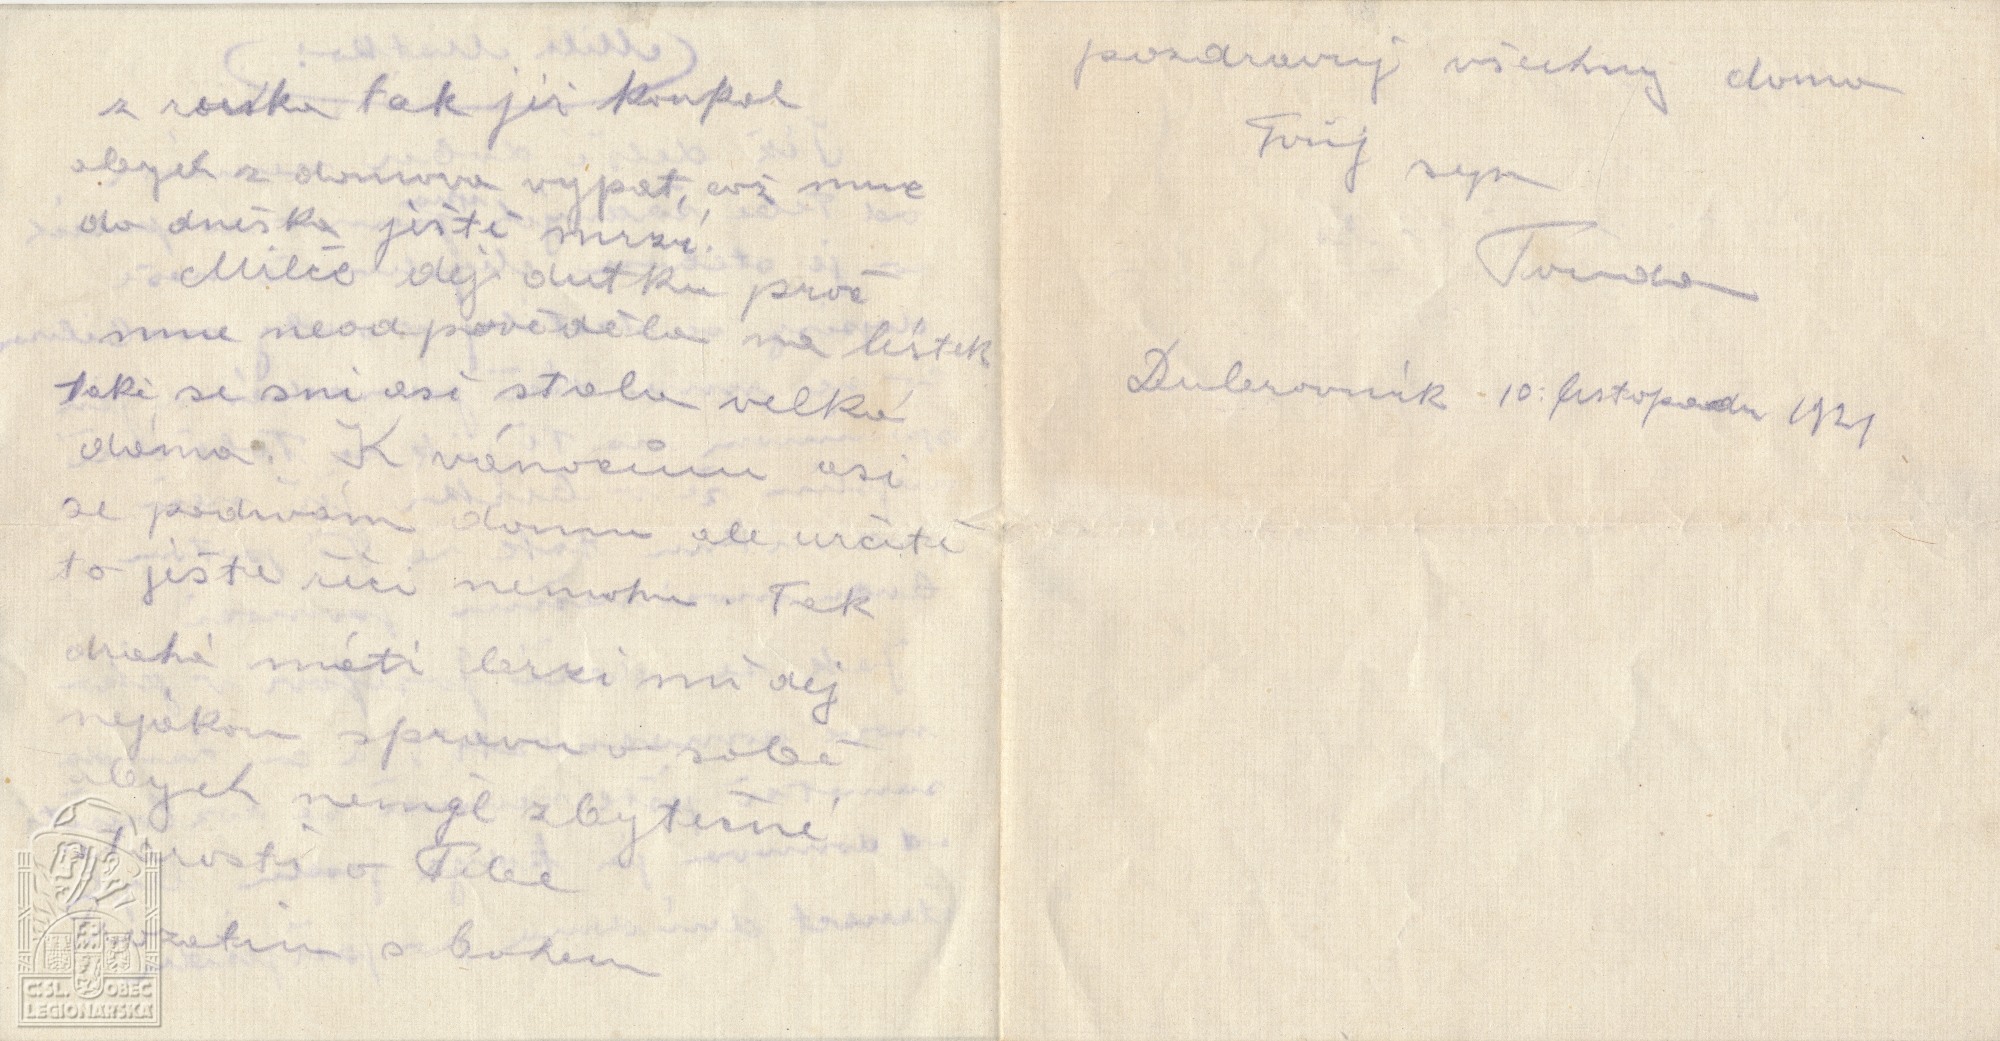 z rouška tak jej koupal
abych z domova vypat, což mne
do dneška ještě mrzí.
Milče dej dutku proč
mne neodpověděla na léstek
také se sní asi stala velká
dáma. K vánocům asi
se podívám domu ale určitě
to ještě říci nemohu. Tak
drahá máti brzi mi dej
nejákou spravu o sobě
abych neměl zbytečné
starosti o Tebe
zatím s bohem
pozdravuj všechny doma
Tvůj syn
Tonda
Dubrovník 10. listopadu 1921
ČSL. OBEC
LEGIONÁŘSKÁ